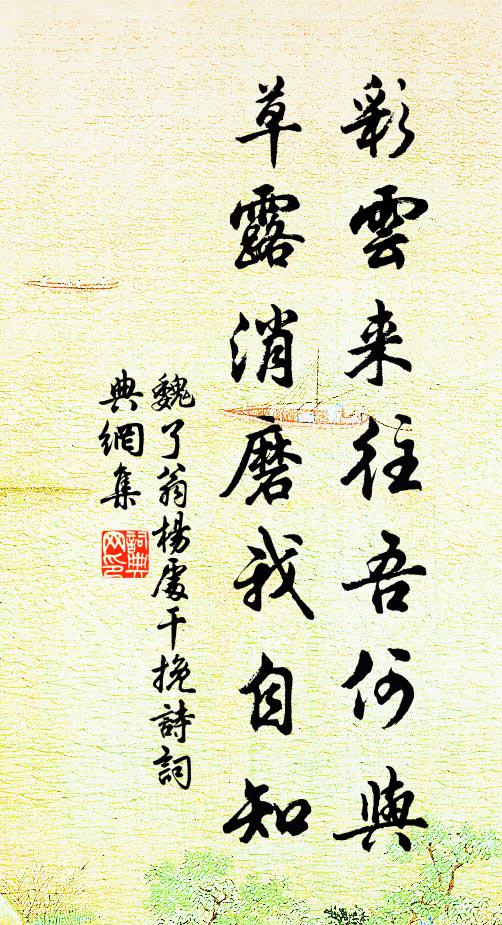 彩雲来往吾何與
草露消磨我自知
魏了翁楊處干挽詩詞
典網集
詞典
网印